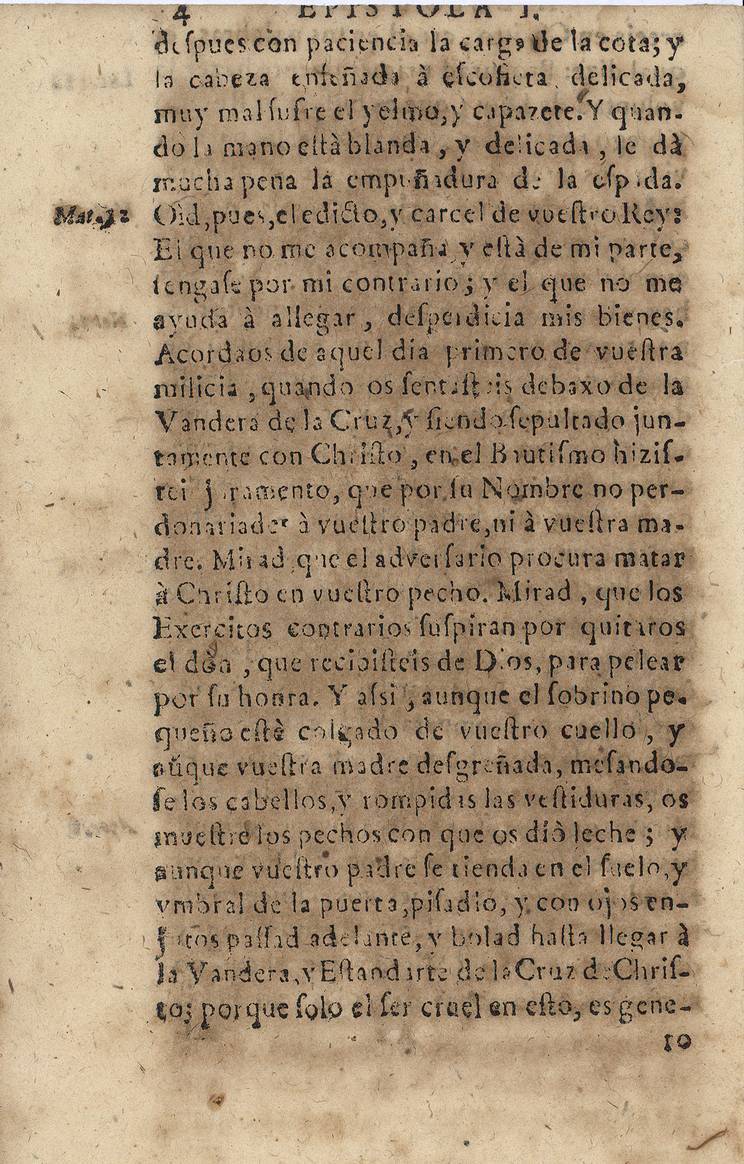 4 EPISTOLA I.
deſpues con paciencia la carga de la cota; y
la cabeza enſeñada à eſcofieta delicada,
muy mal ſufre el yelmo, y capazete. Y quan-
do la mano eſtà blanda, y delicada, le dà
mucha pena la empuñadura de la eſpada.
Mat. 12 Oìd, pues, el edicto, y carcel de vueſtro Rey:
El que no me acompaña y eſtà de mi parte,
tengaſe por mi contrario; y el que no me
ayuda à allegar, deſperdicia mis bienes.
Acordaos de aquel dia primero de vueſtra
milicia, quando os ſentaſteis debaxo de la
Vandera de la Cruz, y ſiendo ſepultado jun-
tamente con Chriſto, en el Bautiſmo hizis-
tei juramento, que por ſu Nombre no per-
donariades à vueſtro padre, ni à vueſtra ma-
dre. Mirad que el adverſario procura matar
à Chriſto en vueſtro pecho. Mirad, que los
Exercitos contrarios ſuſpiran por quitaros
el dòn, que recibiſteis de Dios, para pelear
por ſu honra. Y aſsi, aunque el ſobrino pe-
queño eſtè colgado de vueſtro cuello, y
aũque vueſtra madre deſgreñada, meſando-
ſe los cabellos, y rompidas las veſtiduras, os
mueſtre los pechos con que os diò leche; y
aunque vueſtro padre ſe tienda en el ſuelo, y
vmbral de la puerta, piſadlo, y con ojos en-
jutos paſſad adelante, y bolad haſta llegar à
la Vandera, y Eſtandarte de la Cruz de Chriſ-
to; porque ſolo el ſer cruel en eſto, es gene-
ro